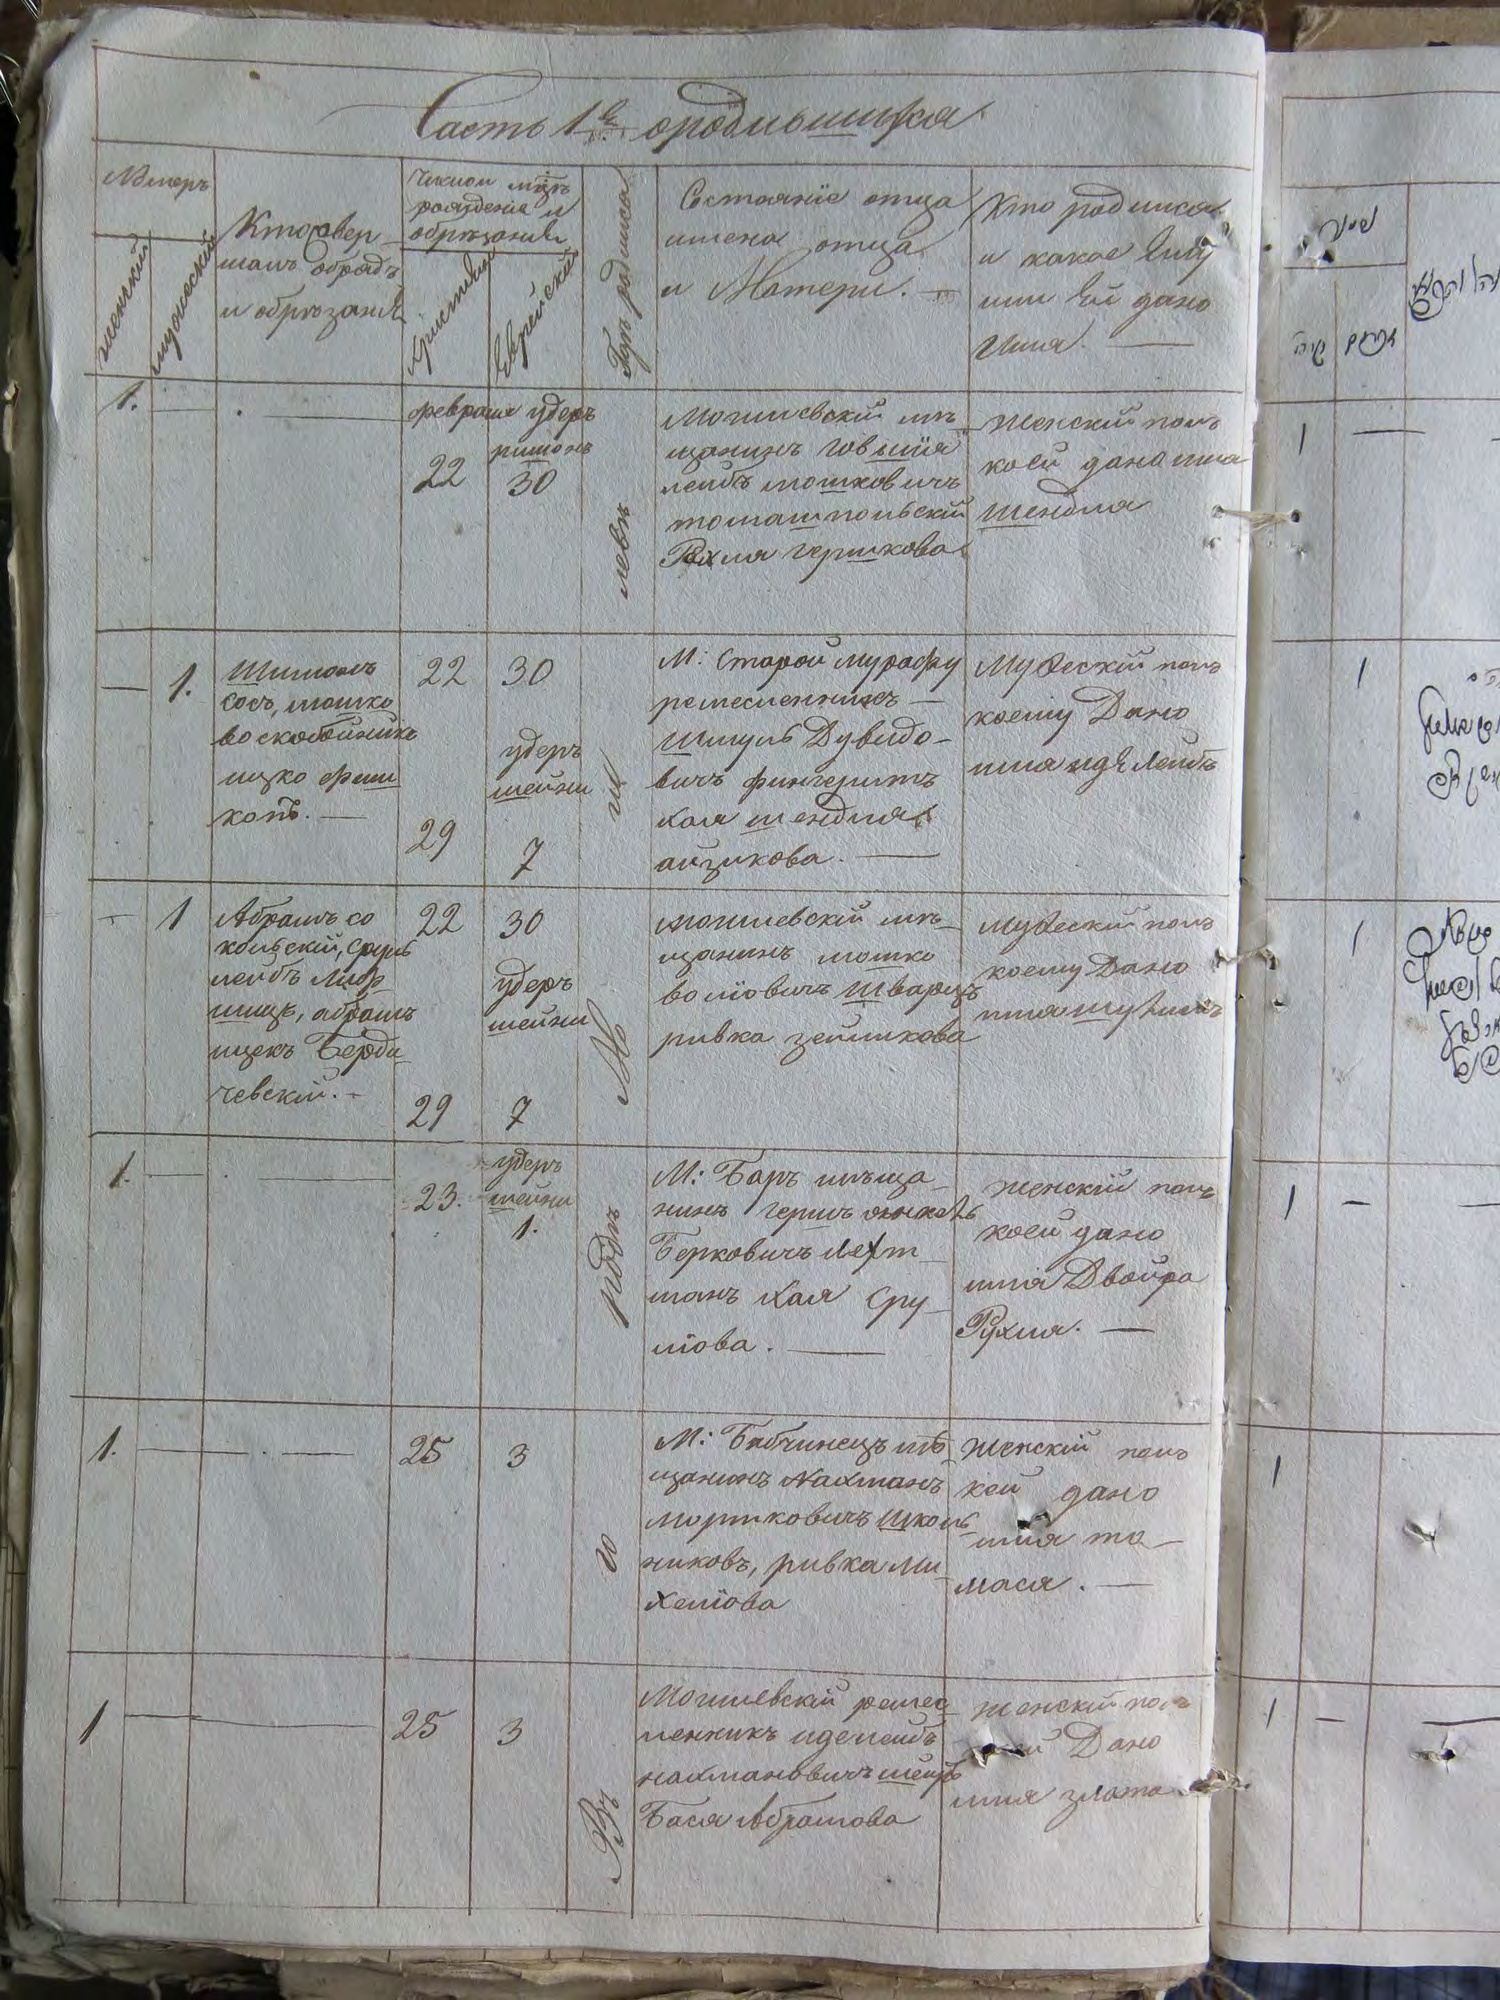 Часть 1я ородившихся
Номеръ
женскій
мужескій
Кто совер
шалъ обрядъ
и обрѣзанія
Число и мѣцъ
рожденія и
обрѣзанія
христіан
Еврейскій
Гдѣ родился
Состояніе отца
имена отца
и Матери. —
Кто родился
и какое Ему
или Ей дано
Имя. —
1. — . —
февраля удеръ
ришонъ
22 30
Могилевскій мѣ
щанинъ Говшія
лейбъ мошковичъ
томашпольскій
Рохля гершкова
женскій полъ
коей дано имя
шендля
— 1.
Шимонъ
Сосъ, мошко
воскобойникъ
ицко фиш
копъ. —
22 30
удеръ
шейни
29 7
М: Старой мурафы
ремесленникъ —
Шмуль Дувидо-
вичъ фингеритъ
хая шендля
айзикова. —
Мужескій полъ
коему Дано
имя идя Лейбъ
— 1
Абрамъ со
кольскій, сруль
лейбъ Лиф
шицъ, абрамъ
ицекъ Берди-
чевскій. -
22 30
удеръ
шейни
29 7
могилевскій мѣ-
щанинъ мошко
волiовичъ Шварцъ
ривка зейликова
мужескій полъ
коему Дано
имя шулимъ
1. — —
23.
удеръ
шейни
1.
М: Баръ мѣща-
нинъ гершъ янкель
Берковичъ Лехт-
манъ Хая Сру-
лiова. —
женскій полъ
коей дано
имя Двойра
Рухля. —
1. — . —
25 3
М: Бабчинецъ мѣ-
щанинъ Нахманъ
мортковичъ Школь
никовъ, ривка ми-
хелiова
Женскій полъ
кей дано
имя та-
мася. —
1 — —
25 3
Могилевскій ремес
ленникъ иделейбъ
нахмановичъ шейнъ
Бася Абрамова
женскій полъ
Дано
имя злата
Въ го родѣ Мо ги левѣ
1 —
1
1
1 — —
1
1 — —